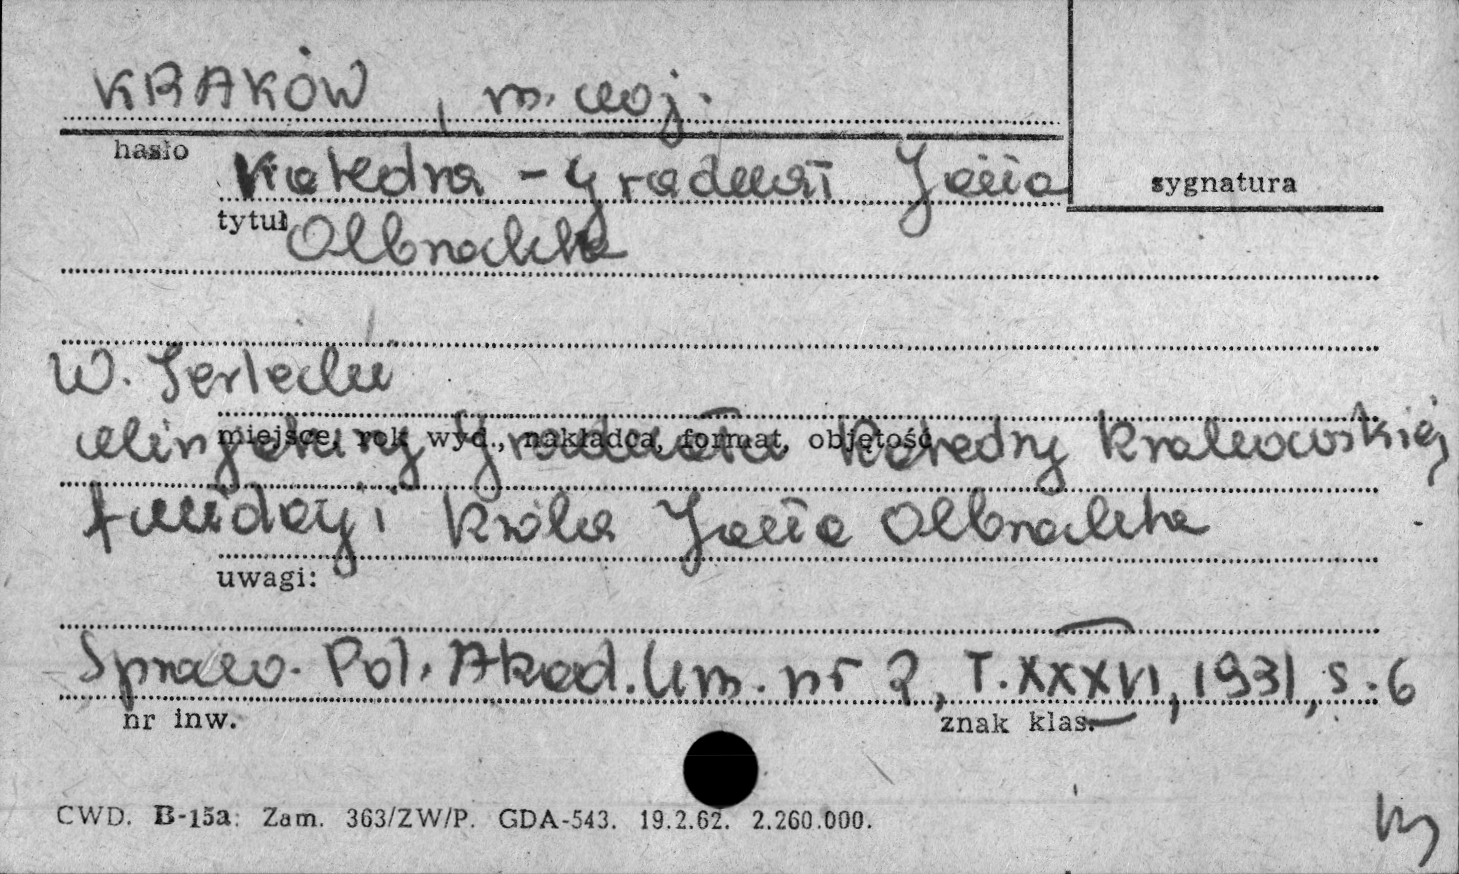 KRAKÓW, m. woj.
hasło
Katedra - Graduał Jana
sygnatura
tytuł
Olbrachta
W. Terlecki
miejsce, rok wyd., nakładca, format, objętość
Minjatury Graduału Katedry Krakowskiej
fundacji króla Jana Olbrachta
uwagi:
Spraw. Pol. Akad. Um. nr 2, T. XXXVI, 1931, s. 6
nr inw.
znak klas.
CWD. B-15a: Zam. 363/ZW/P. GDA-543. 19.2.62. 2.260.000.